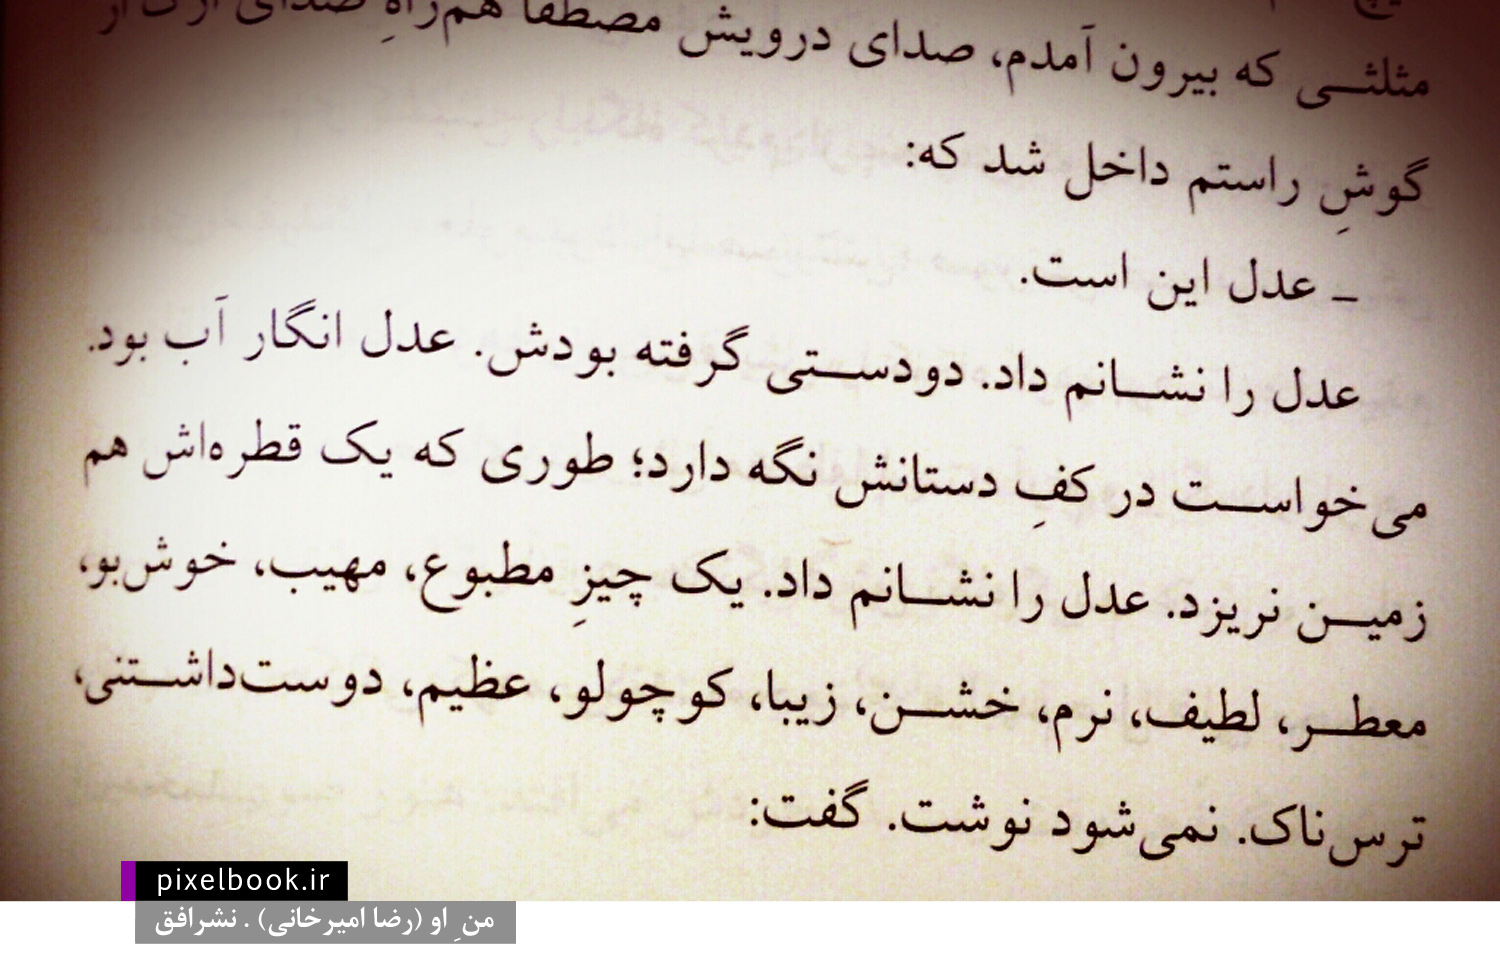 مثلثی که بیرون آمدم، صدای درویش مصطفا هم‌راهِ صدای
گوشِ راستم داخل شد که:
ـ عدل این است.
عدل را نشانم داد. دودستی گرفته بودش. عدل انگار آب بود.
می‌خواست در کفِ دستانش نگه دارد؛ طوری که یک قطره‌اش هم
زمین نریزد. عدل را نشانم داد. یک چیزِ مطبوع، مهیب، خوش‌بو،
معطر، لطیف، نرم، خشن، زیبا، کوچولو، عظیم، دوست‌داشتنی،
ترس‌ناک. نمی‌شود نوشت. گفت:
pixelbook.ir
منِ او (رضا امیرخانی) . نشرافق